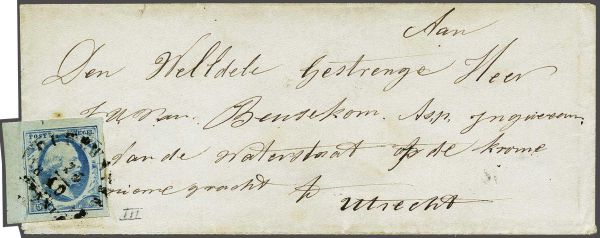 Aan
Den WelEdele Gestrenge Heer
J. H. Van Beusekom. Asp. Ingenieur.
Van de Waterstaat op de Krome
nieme gracht te
Utrecht
POST ZEGEL
III